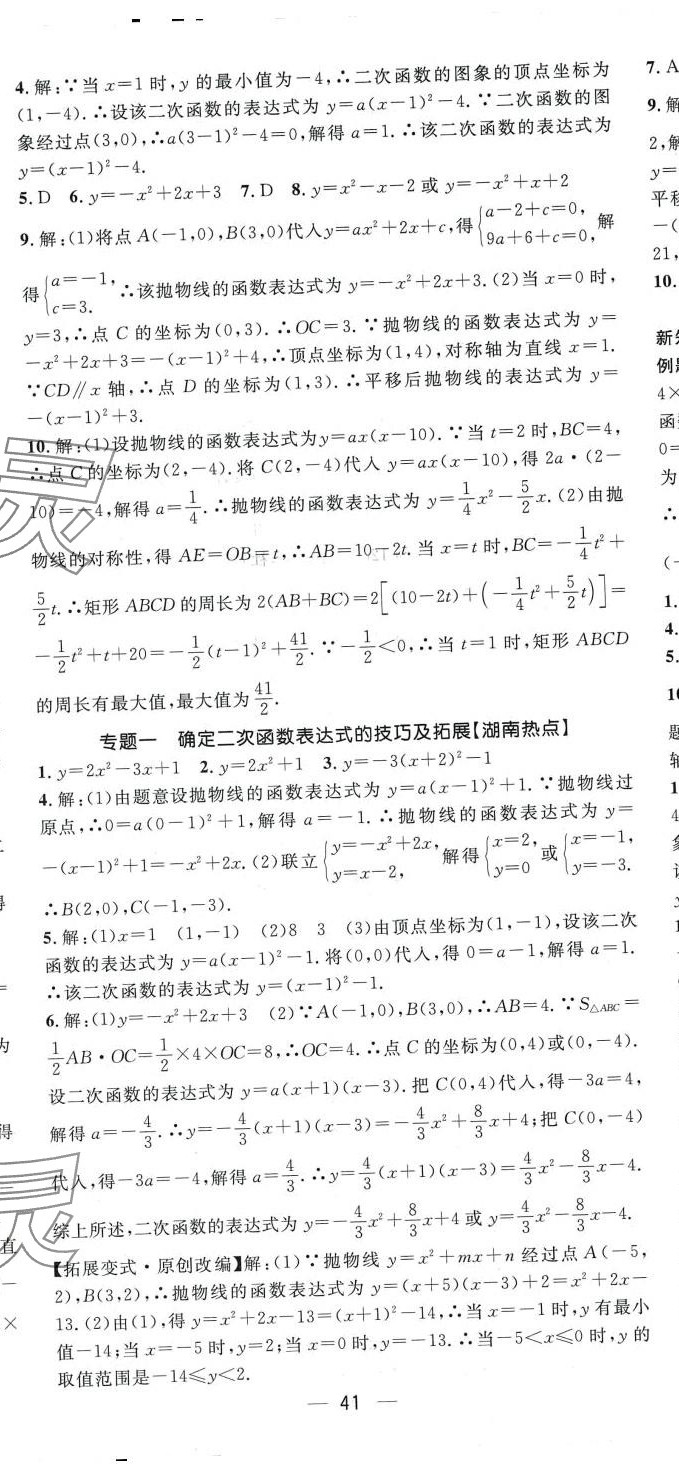 4.解:∵当 x=1 时,y 的最小值为-4,∴二次函数的图象的顶点坐标为
(1,-4).∴设该二次函数的表达式为 y=a(x-1)²-4.∵二次函数的图
象经过点(3,0),∴a(3-1)²-4=0,解得 a=1.∴该二次函数的表达式为
y=(x-1)²-4.
5.D 6.y=-x²+2x+3 7.D 8.y=x²-x-2 或 y=-x²+x+2
9.解:(1)将点 A(-1,0),B(3,0)代入y=ax²+2x+c,得{a-2+c=0, 9a+6+c=0,解
得{a=-1, c=3. ∴该抛物线的函数表达式为 y=-x²+2x+3.(2)当 x=0 时,
y=3,∴点 C 的坐标为(0,3).∴OC=3.∵抛物线的函数表达式为 y=
-x²+2x+3=-(x-1)²+4,∴顶点坐标为(1,4),对称轴为直线 x=1.
∵CD∥x 轴,∴点 D 的坐标为(1,3).∴平移后抛物线的表达式为 y=
-(x-1)²+3.
10.解:(1)设抛物线的函数表达式为y=ax(x-10).∵当 t=2 时,BC=4,
∴点 C的坐标为(2,-4).将 C(2,-4)代入 y=ax(x-10),得 2a·(2-
10)=-4,解得 a=1/4.∴抛物线的函数表达式为 y=1/4x²-5/2x.(2)由抛
物线的对称性,得 AE=OB=t,∴AB=10-2t.当 x=t 时,BC=-1/4t²+
5/2t.∴矩形 ABCD 的周长为 2(AB+BC)=2[(10-2t)+(-1/4t²+5/2t)]=
-1/2t²+t+20=-1/2(t-1)²+41/2.∵-1/2<0,∴当 t=1 时,矩形 ABCD
的周长有最大值,最大值为41/2.
专题一 确定二次函数表达式的技巧及拓展【湖南热点】
1.y=2x²-3x+1 2.y=2x²+1 3.y=-3(x+2)²-1
4.解:(1)由题意设抛物线的函数表达式为 y=a(x-1)²+1.∵抛物线过
原点,∴0=a(0-1)²+1,解得 a=-1.∴抛物线的函数表达式为 y=
-(x-1)²+1=-x²+2x.(2)联立{y=-x²+2x, y=x-2, 解得{x=2, y=0 或{x=-1, y=-3.
∴B(2,0),C(-1,-3).
5.解:(1)x=1 (1,-1) (2)8 3 (3)由顶点坐标为(1,-1),设该二次
函数的表达式为 y=a(x-1)²-1.将(0,0)代入,得 0=a-1,解得 a=1.
∴该二次函数的表达式为 y=(x-1)²-1.
6.解:(1)y=-x²+2x+3 (2)∵A(-1,0),B(3,0),∴AB=4.∵S△ABC=
1/2AB·OC=1/2×4×OC=8,∴OC=4.∴点 C 的坐标为(0,4)或(0,-4).
设二次函数的表达式为 y=a(x+1)(x-3).把 C(0,4)代入,得-3a=4,
解得 a=-4/3.∴y=-4/3(x+1)(x-3)=-4/3x²+8/3x+4;把 C(0,-4)
代入,得-3a=-4,解得 a=4/3.∴y=4/3(x+1)(x-3)=4/3x²-8/3x-4.
综上所述,二次函数的表达式为 y=-4/3x²+8/3x+4 或 y=4/3x²-8/3x-4.
【拓展变式·原创改编】解:(1)∵抛物线 y=x²+mx+n 经过点 A(-5,
2),B(3,2),∴抛物线的函数表达式为 y=(x+5)(x-3)+2=x²+2x-
13.(2)由(1),得 y=x²+2x-13=(x+1)²-14,∴当 x=-1 时,y 有最小
值-14;当 x=-5 时,y=2;当 x=0 时,y=-13.∴当-5<x≤0 时,y 的
取值范围是-14≤y<2.
— 41 —
7.A
9.解
2,解
y=
平移
-(
21,
10.
例题
4×
函数
0=
为
∴
(-
1.
4.
5.
10
题
轴
1
4
灵
灵